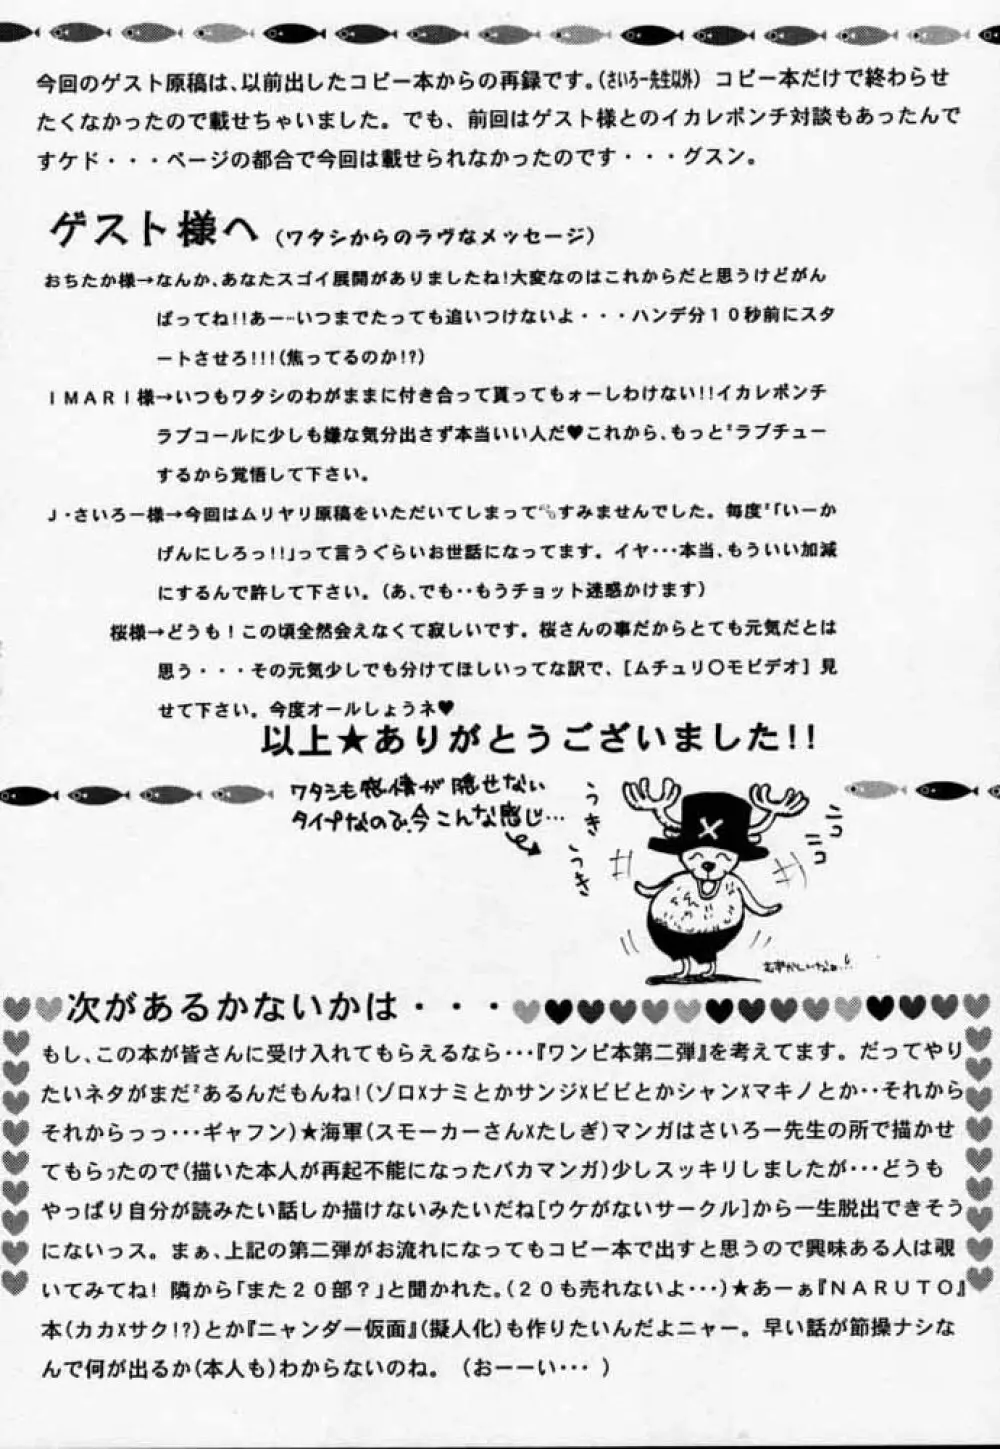 今回のゲスト原稿は、以前出したコピー本からの再録です。(さいろー先生以外) コピー本だけで終わらせ
たくなかったので載せちゃいました。でも、前回はゲスト様とのイカレポンチ対談もあったんで
すケド・・・ページの都合で今回は載せられなかったのです・・・グスン。
ゲスト様へ (ワタシからのラヴなメッセージ)
おちたか様→なんか、あなたスゴイ展開がありましたね!大変なのはこれからだと思うけどがん
ばってね!!あー…いつまでたっても追いつけないよ・・・ハンデ分10秒前にスタ
ートさせろ!!!(焦ってるのか!?)
IMARI様→いつもワタシのわがままに付き合って貰ってもォーしわけない!!イカレポンチ
ラブコールに少しも嫌な気分出さず本当いい人だ♥これから、もっと²ラブチュー
するから覚悟して下さい。
J・さいろー様→今回はムリヤリ原稿をいただいてしまって💦すみませんでした。毎度²「いーか
げんにしろっ!!」って言うぐらいお世話になってます。イヤ・・・本当、もういい加減
にするんで許して下さい。(あ、でも・・もうチョット迷惑かけます)
桜様→どうも!この頃全然会えなくて寂しいです。桜さんの事だからとても元気だとは
思う・・・その元気少しでも分けてほしいってな訳で、[ムチュリ〇モビデオ]見
せて下さい。今度オールしょうネ♥
以上★ありがとうございました!!
ワタシも感情が隠せない
タイプなので、今こんな感じ…
うき
うき
ニコ
ニコ
むずかしいなぁ!!
次があるかないかは・・・
もし、この本が皆さんに受け入れてもらえるなら・・・『ワンピ本第二弾』を考えてます。だってやり
たいネタがまだ²あるんだもんね!(ゾロXナミとかサンジXビビとかシャンXマキノとか・・それから
それからっっ・・・ギャフン)★海軍(スモーカーさんXたしぎ)マンガはさいろー先生の所で描かせ
てもらったので(描いた本人が再起不能になったバカマンガ)少しスッキリしましたが・・・どうも
やっぱり自分が読みたい話しか描けないみたいだね[ウケがないサークル]から一生脱出できそう
にないっス。まぁ、上記の第二弾がお流れになってもコピー本で出すと思うので興味ある人は覗
いてみてね! 隣から「また20部?」と聞かれた。(20も売れないよ・・・)★あーぁ『NARUTO』
本(カカXサク!?)とか『ニャンダー仮面』(擬人化)も作りたいんだよニャー。早い話が節操ナシな
んで何が出るか(本人も)わからないのね。 (おーーい・・・ )